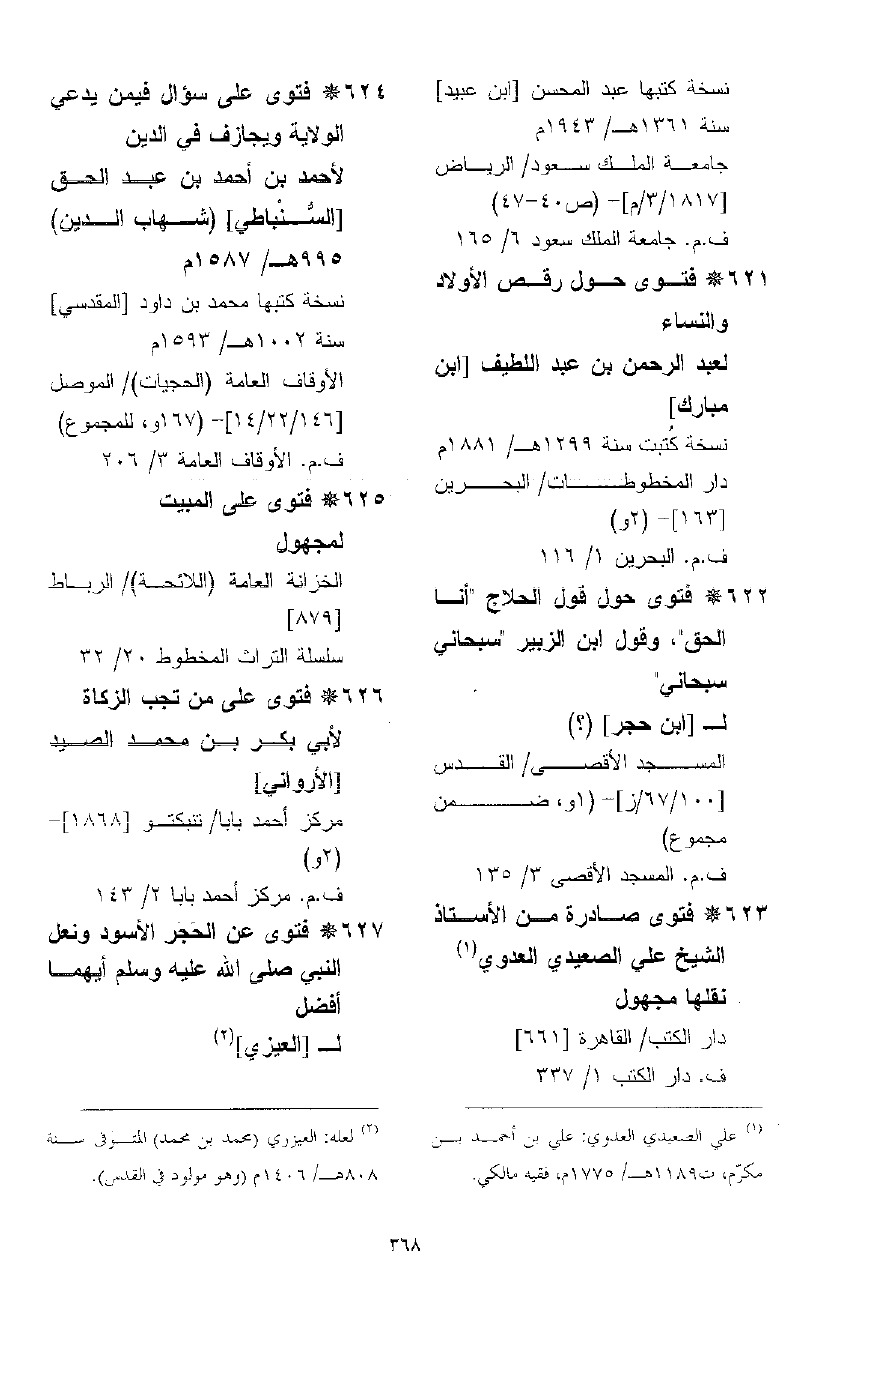 نسخة كتبها عبد المحسن [ابن عبيد]
سنة ١٣٦١هـ/ ١٩٤٣م
جامعة الملك سعود/ الرياض
[١٨١٧/٣/م]- (ص٤٠-٤٧)
ف.م. جامعة الملك سعود ٦/ ١٦٥
٦٢١* فتوى حول رقص الأولاد
والنساء
لعبد الرحمن بن عبد اللطيف [ابن
مبارك]
نسخة كُتبت سنة ١٢٩٩هـ/ ١٨٨١م
دار المخطوطات/ البحرين
[١٦٣]- (٢و)
ف.م. البحرين ١/ ١١٦
٦٢٢* فتوى حول قول الحلاج "أنا
الحق"، وقول ابن الزبير "سبحاني
سبحاني"
لـ [ابن حجر] (؟)
المسجد الأقصى/ القدس
[٦٧/١٠٠/ز]- (١و، ضمن
مجموع)
ف.م. المسجد الأقصى ٣/ ١٣٥
٦٢٣* فتوى صادرة من الأستاذ
الشيخ علي الصعيدي العدوي(١)
نقلها مجهول
دار الكتب/ القاهرة [٦٦١]
ف. دار الكتب ١/ ٣٣٧
(١) علي الصعيدي العدوي: علي بن أحمد بن
مكرّم، ت١١٨٩هـ/ ١٧٧٥م، فقيه مالكي.
٦٢٤* فتوى على سؤال فيمن يدعي
الولاية ويجازف في الدين
لأحمد بن أحمد بن عبد الحق
[السُّنْباطي] (شهاب الدين)
٩٩٥هـ/ ١٥٨٧م
نسخة كتبها محمد بن داود [المقدسي]
سنة ١٠٠٢هـ/ ١٥٩٣م
الأوقاف العامة (الحجيات)/ الموصل
[١٤/٢٢/١٤٦]- (١٦٧و، للمجموع)
ف.م. الأوقاف العامة ٣/ ٢٠٦
٦٢٥* فتوى على المبيت
لمجهول
الخزانة العامة (اللائحة)/ الرباط
[٨٧٩]
سلسلة التراث المخطوط ٢٠/ ٣٢
٦٢٦* فتوى على من تجب الزكاة
لأبي بكر بن محمد الصيد
[الأرواني]
مركز أحمد بابا/ تنبكتو [١٨٦٨]-
(٢و)
ف.م. مركز أحمد بابا ٢/ ١٤٣
٦٢٧* فتوى عن الحَجَر الأسود ونعل
النبي صلى الله عليه وسلم أيهما
أفضل
لـ [العيزي](٢)
(٢) لعله: العيزري (محمد بن محمد) المتوفى سنة
٨٠٨هـ/ ١٤٠٦م (وهو مولود في القدس).
٣٦٨